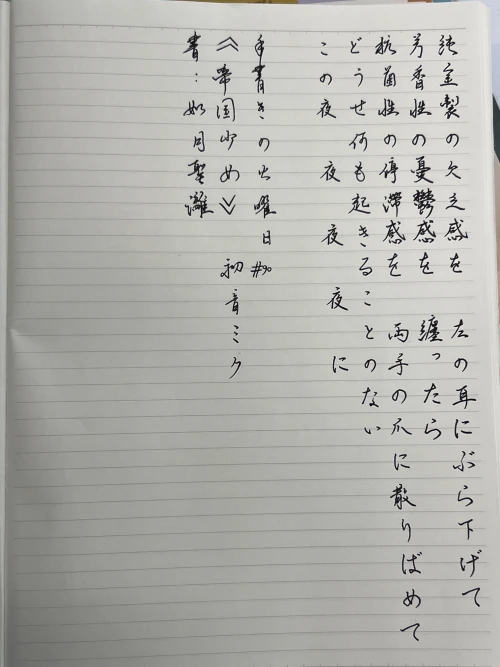 純金製の欠乏感を 左の耳にぶら下げて
芳香性の憂鬱感を 纏ったら
抗菌性の停滞感を 両手の爪に散りばめて
どうせ何も起きることのない
この夜 夜 夜 夜に
手書きの火曜日 #90
《帝国少女》 初音ミク
書：如月聖灕